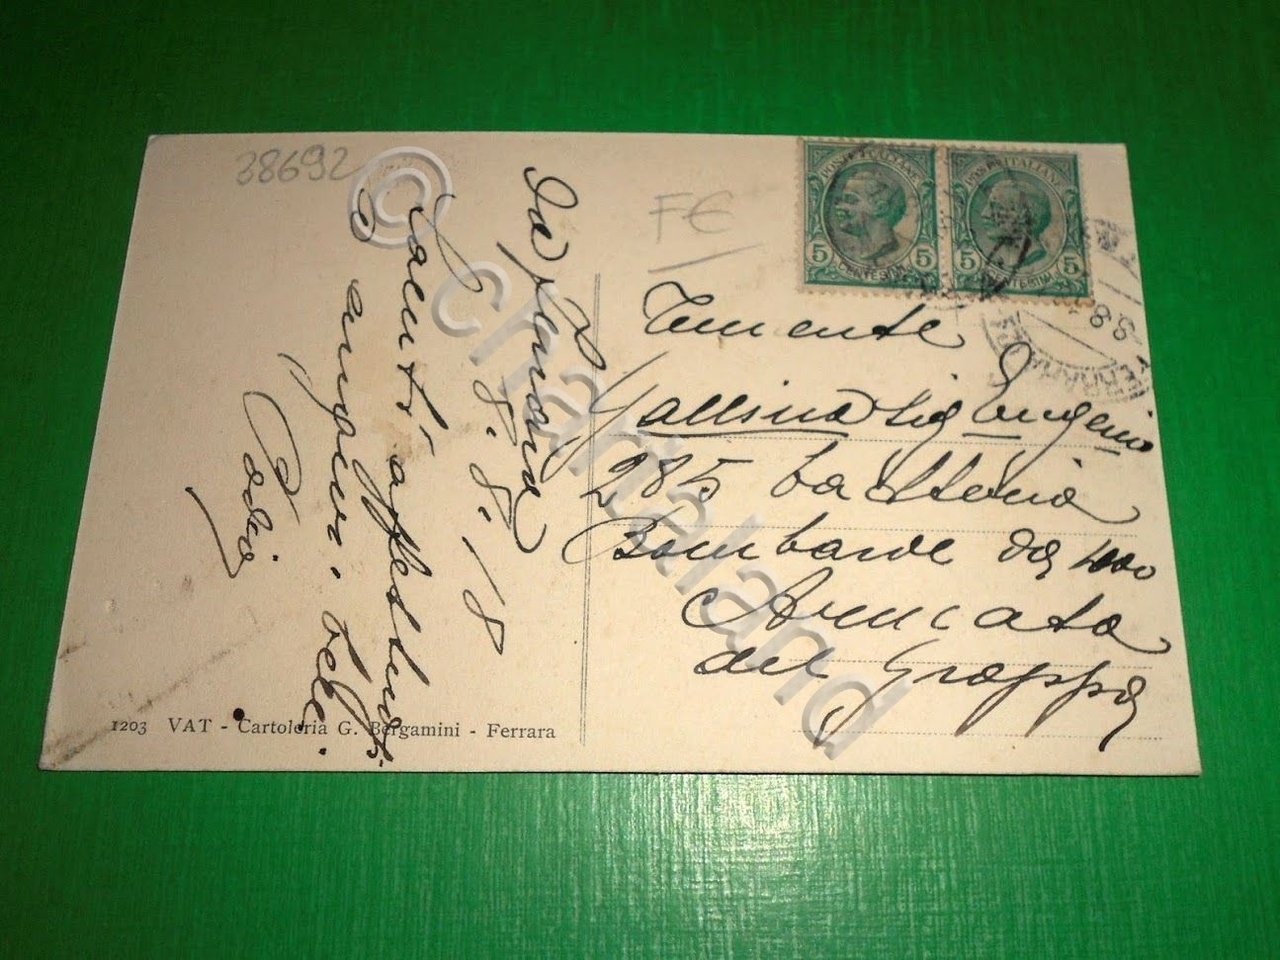 38692
FE
POSTE ITALIANE
5 5
CENTESIMI
POSTE ITALIANE
5 5
CENTESIMI
FERRARA
Da Ferrara
8.8.18
Saluti affettuosi
auguri.
Tenente
Gallina Sig Eugenio
285 batteria
Bombarde da 400
Armata
del Grappa
1203 VAT - Cartoleria G. Bergamini - Ferrara
© chartaland